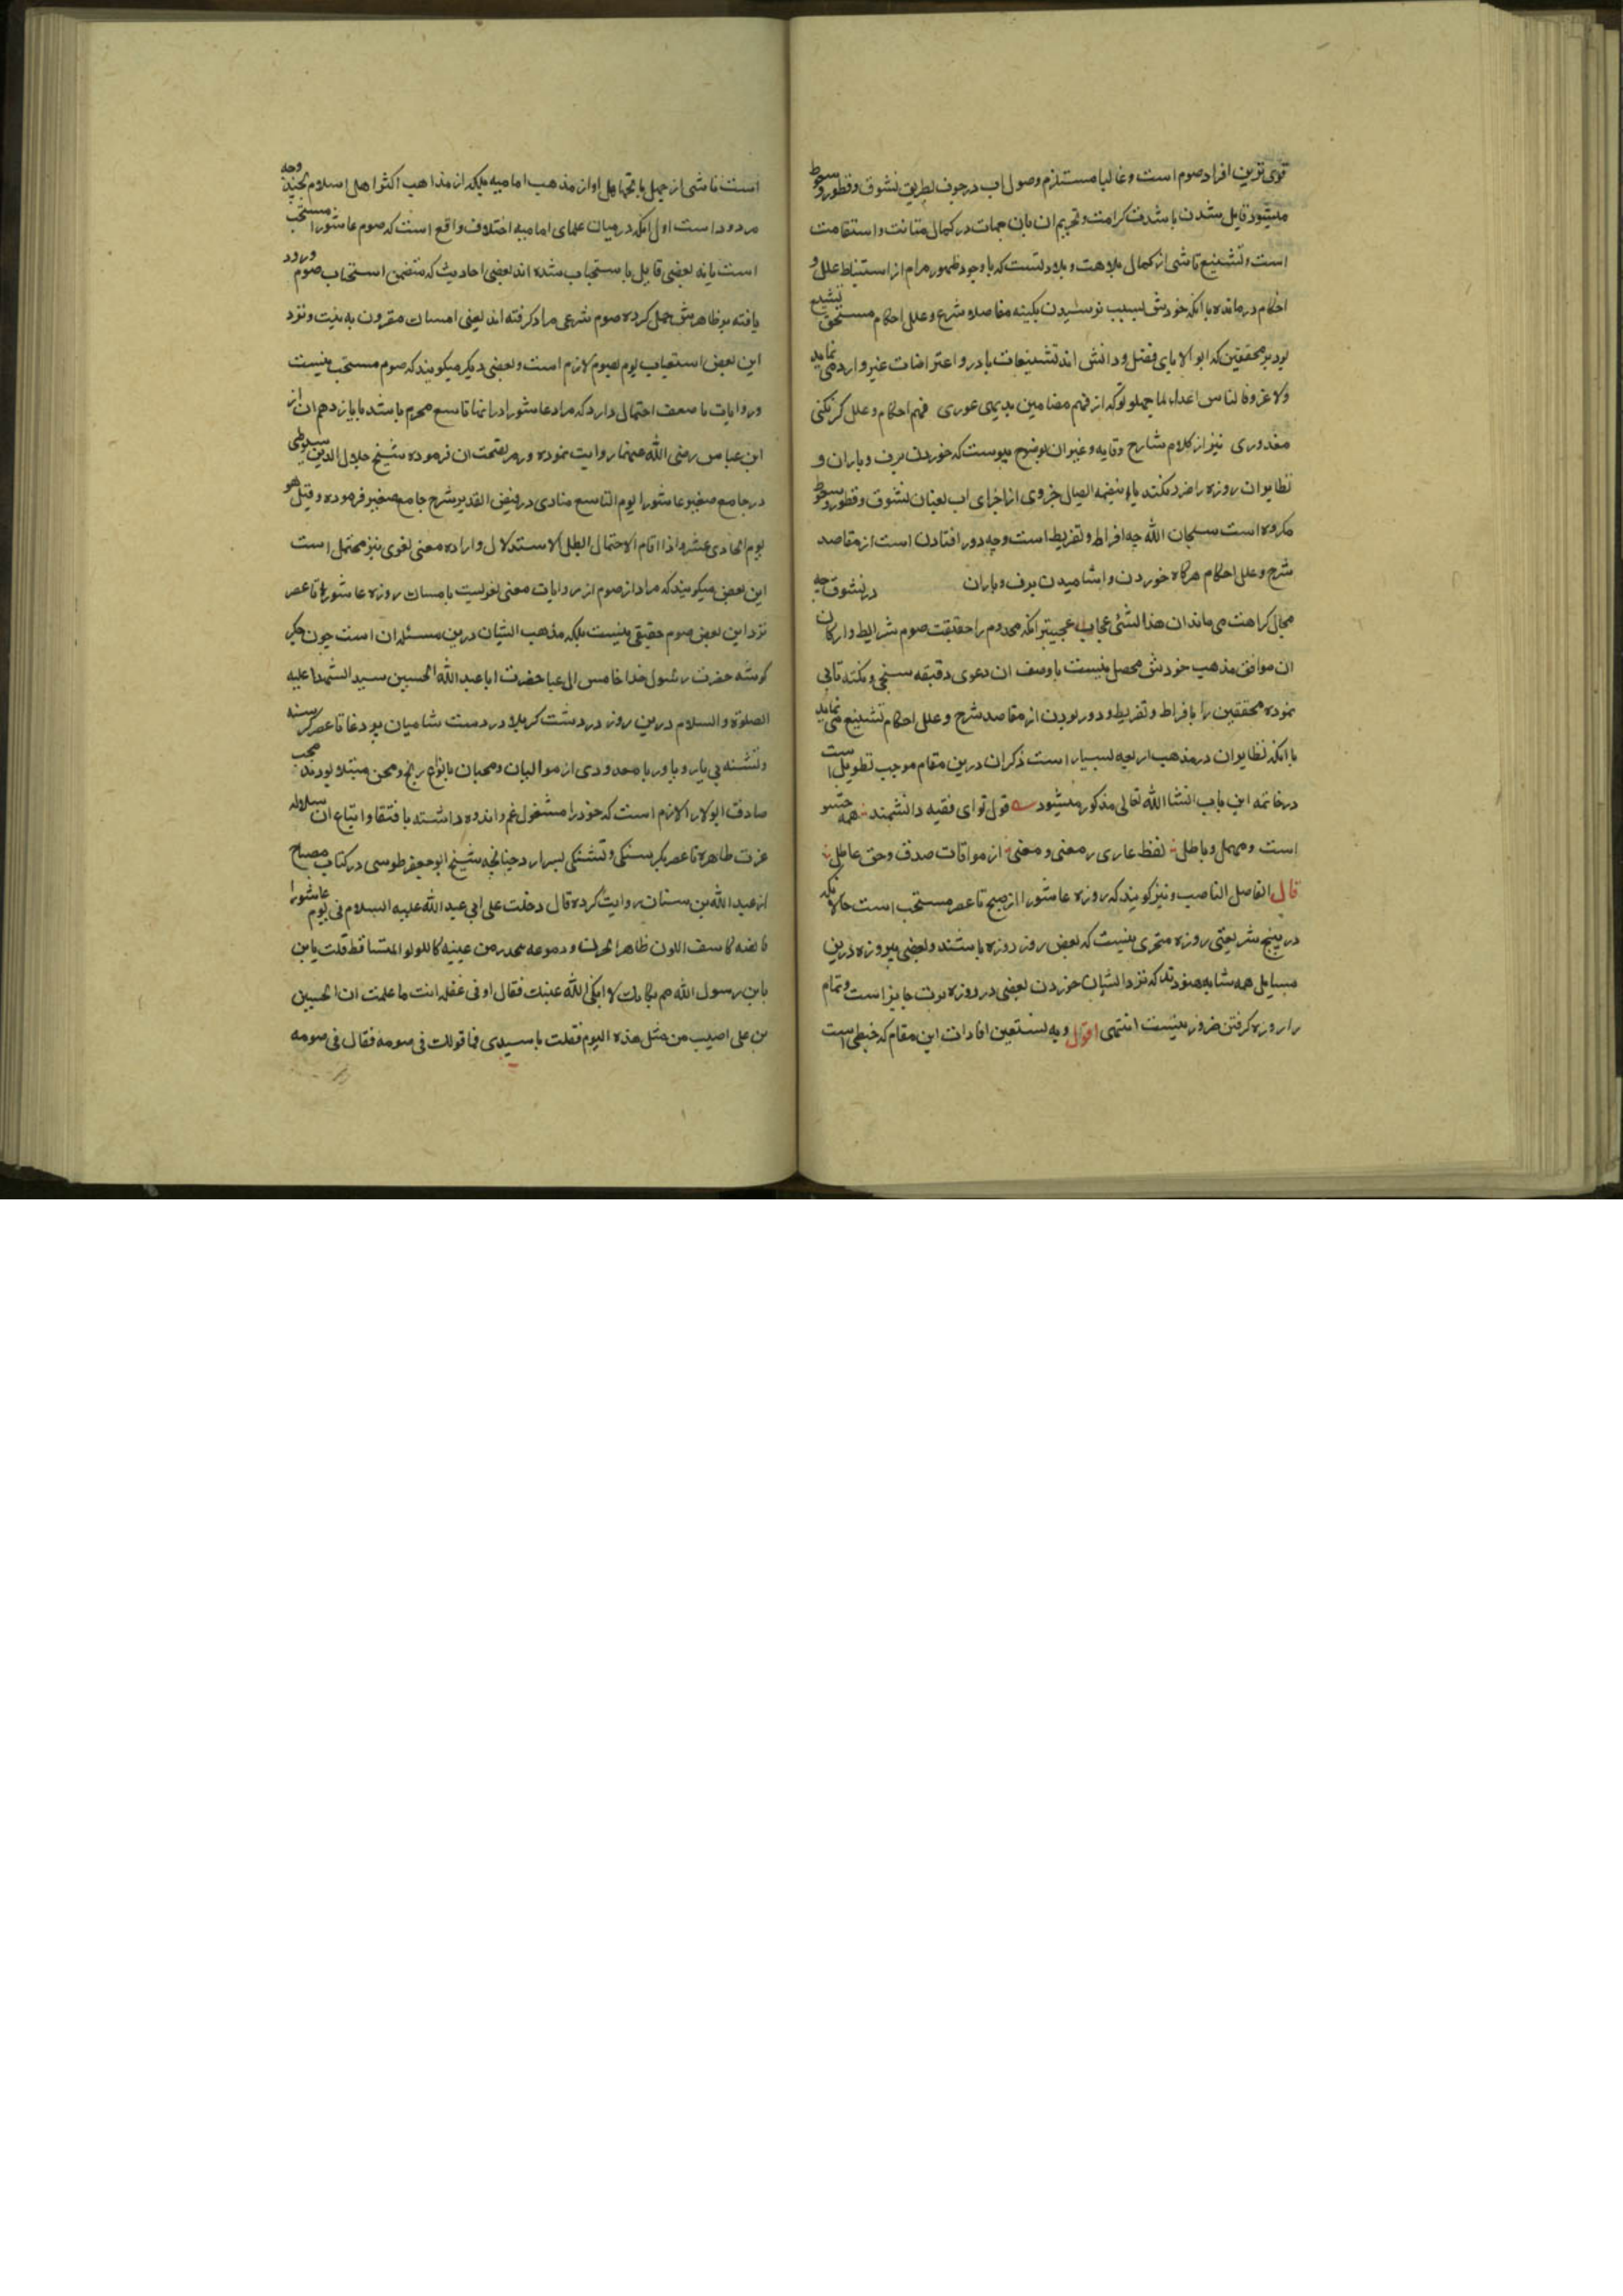 قوی‌ترین افراد صوم است و غالبا مستلزم وصول اب در جوف بطریق نشوق و قطور و سعوط
میشود قایل شدن باشدت کراهت و تحریم ان بان جهات در کمال متانت و استقامت
است و تشنیع ناشی از کمال بلاهت و بلادتست که با وجود ظهور مرام از استنباط علل و
احکام درمانده با انکه خودش بسبب نرسیدن بکینه مقاصده شرع و علل احکام مستحق تشنیع
بود بر محققین که ابو الابای فضل و دانش اند تشنیعات بادر و اعتراضات غیر وارد می نماید
ولا غرو فالناس اعداء لما جهلو تو که از فهم مضامین بدیهی عوری فهم احکام و علل کر نکنی
معذوری نیز از کلام شارح وقایه و غیر ان بوضوح پیوست که خوردن برف و باران و
نظایر ان روزه را ضرر نکند یا ایصال جزوی از اجزای اب بعنوان نشوق و قطور و سعوط
مکروه است سبحان الله چه افراط و تفریط است و چه دور افتادن است از مقاصد
شرع و علل احکام هرکاه خوردن و اشامیدن برف و باران در نشوق چه
مجال کراهت می ماند ان هذا لشئ عجاب عجیبتر انکه مخدوم را حقیقت صوم شرایط و ارکان
ان موافق مذهب خودش محصل نیست با وصف ان دعوی دقیقه سنجی و نکته تابی
نموده محققین را بافراط و تفریط و دور بودن از مقاصد شرع و علل احکام تشنیع می نماید
با انکه نظایر ان در مذهب اربعه بسیار است ذکر ان درین مقام موجب تطویل است
در خاتمه این باب انشا الله تعالی مذکور میشود قول تو ای فقیه دانشمند همه حشو
است و مهمل و باطل لفظ عاری ز معنی و معنی از موافات صدق و حق عاطل
قال الفاصل الناصب و نیز کویند که روزه عاشورا از صبح تا عصر مستحب است حالانکه
در هیچ شریعتی روزه متجزی نیست که بعض روز روزه باشند و بعضی بیروزه درین
مسایل همه مشابه هنود تد که نزد ایشان خوردن بعضی در روزه برت جایز است و تمام
را روزه کرفتن ضرور نیست انتهی اقول وبه نستعین افادات این مقام که خبطی است
است ناشی از جهل یا تجاهل او از مذهب امامیه بلکه از مذاهب اکثر اهل اسلام بچند وجه
مردود است اول انکه در میان علمای امامیه اختلاف واقع است که صوم عاشورا مستحب
است یا نه بعضی قایل باستحباب شده اند بعضی احادیث که متضمن استحباب صوم ورود
یافته بر ظاهرش حمل کرده صوم شرعی مراد کرفته اند یعنی امساک مقرون به نیت و نزد
این بعض استیعاب یوم بصوم لازم است و بعضی دیکر میکویند که صوم مستحب نیست
و روایات با ضعف احتمال دارد که مراد عاشورا در انها تاسع محرم باشد یا یازدهم ان از
ابن عباس رضی الله عنهما روایت نموده و رمز بصحت ان فرموده شیخ جلال الدین سیوطی
در جامع صغیر عاشورا یوم التاسع منادی در فیض القدیر شرح جامع صغیر فرموده و قیل هو
یوم الحادی عشر و اذا قام الاحتمال ابطل الاستدلال و اراده معنی لغوی نیز محتمل است
این بعض میکویند که مراد از صوم ازین روایات معنی لغویست یا امساک روزه عاشورا تا عصر
نزد این بعض صوم حقیقی نیست بلکه مذهب ایشان درین مسئله ان است چون جکر
کوشه حضرت رسول خدا خامس ال عبا حضرت ابا عبد الله الحسین سید الشهدا علیه
الصلوة و السلام درین روز در دشت کربلا در دست شامیان پر دغا تا عصر کرسنه
و تشنه بی یار و یاور با معدودی از موالیان و محبان بانواع رنج و محن مبتلا بودند محب
صادق ابولا را لازم است که خود را مشغول غم و اندوه داشته باقتفا و اتباع ان سلاله
عزت طاهره تا عصر بکرسنکی و تشنکی بسر ارد چنانچه شیخ ابو جعفر طوسی در کتاب مصباح
از عبد الله بن سنان روایت کرده قال دخلت علی ابی عبد الله علیه السلام فی یوم عاشورا
فالفیه کاسف اللون ظاهر الحزن و دموعه ینحدر من عینیه کاللولو المتساقط قلت یا بن
یابن رسول الله مم بکاءک لا ابکی الله عینیک فقال او فی غفله انت ما علمت ان الحسین
بن علی اصیب من مثل هذه الیوم فقلت یا سیدی فما قولک فی صومه فقال فی صومه